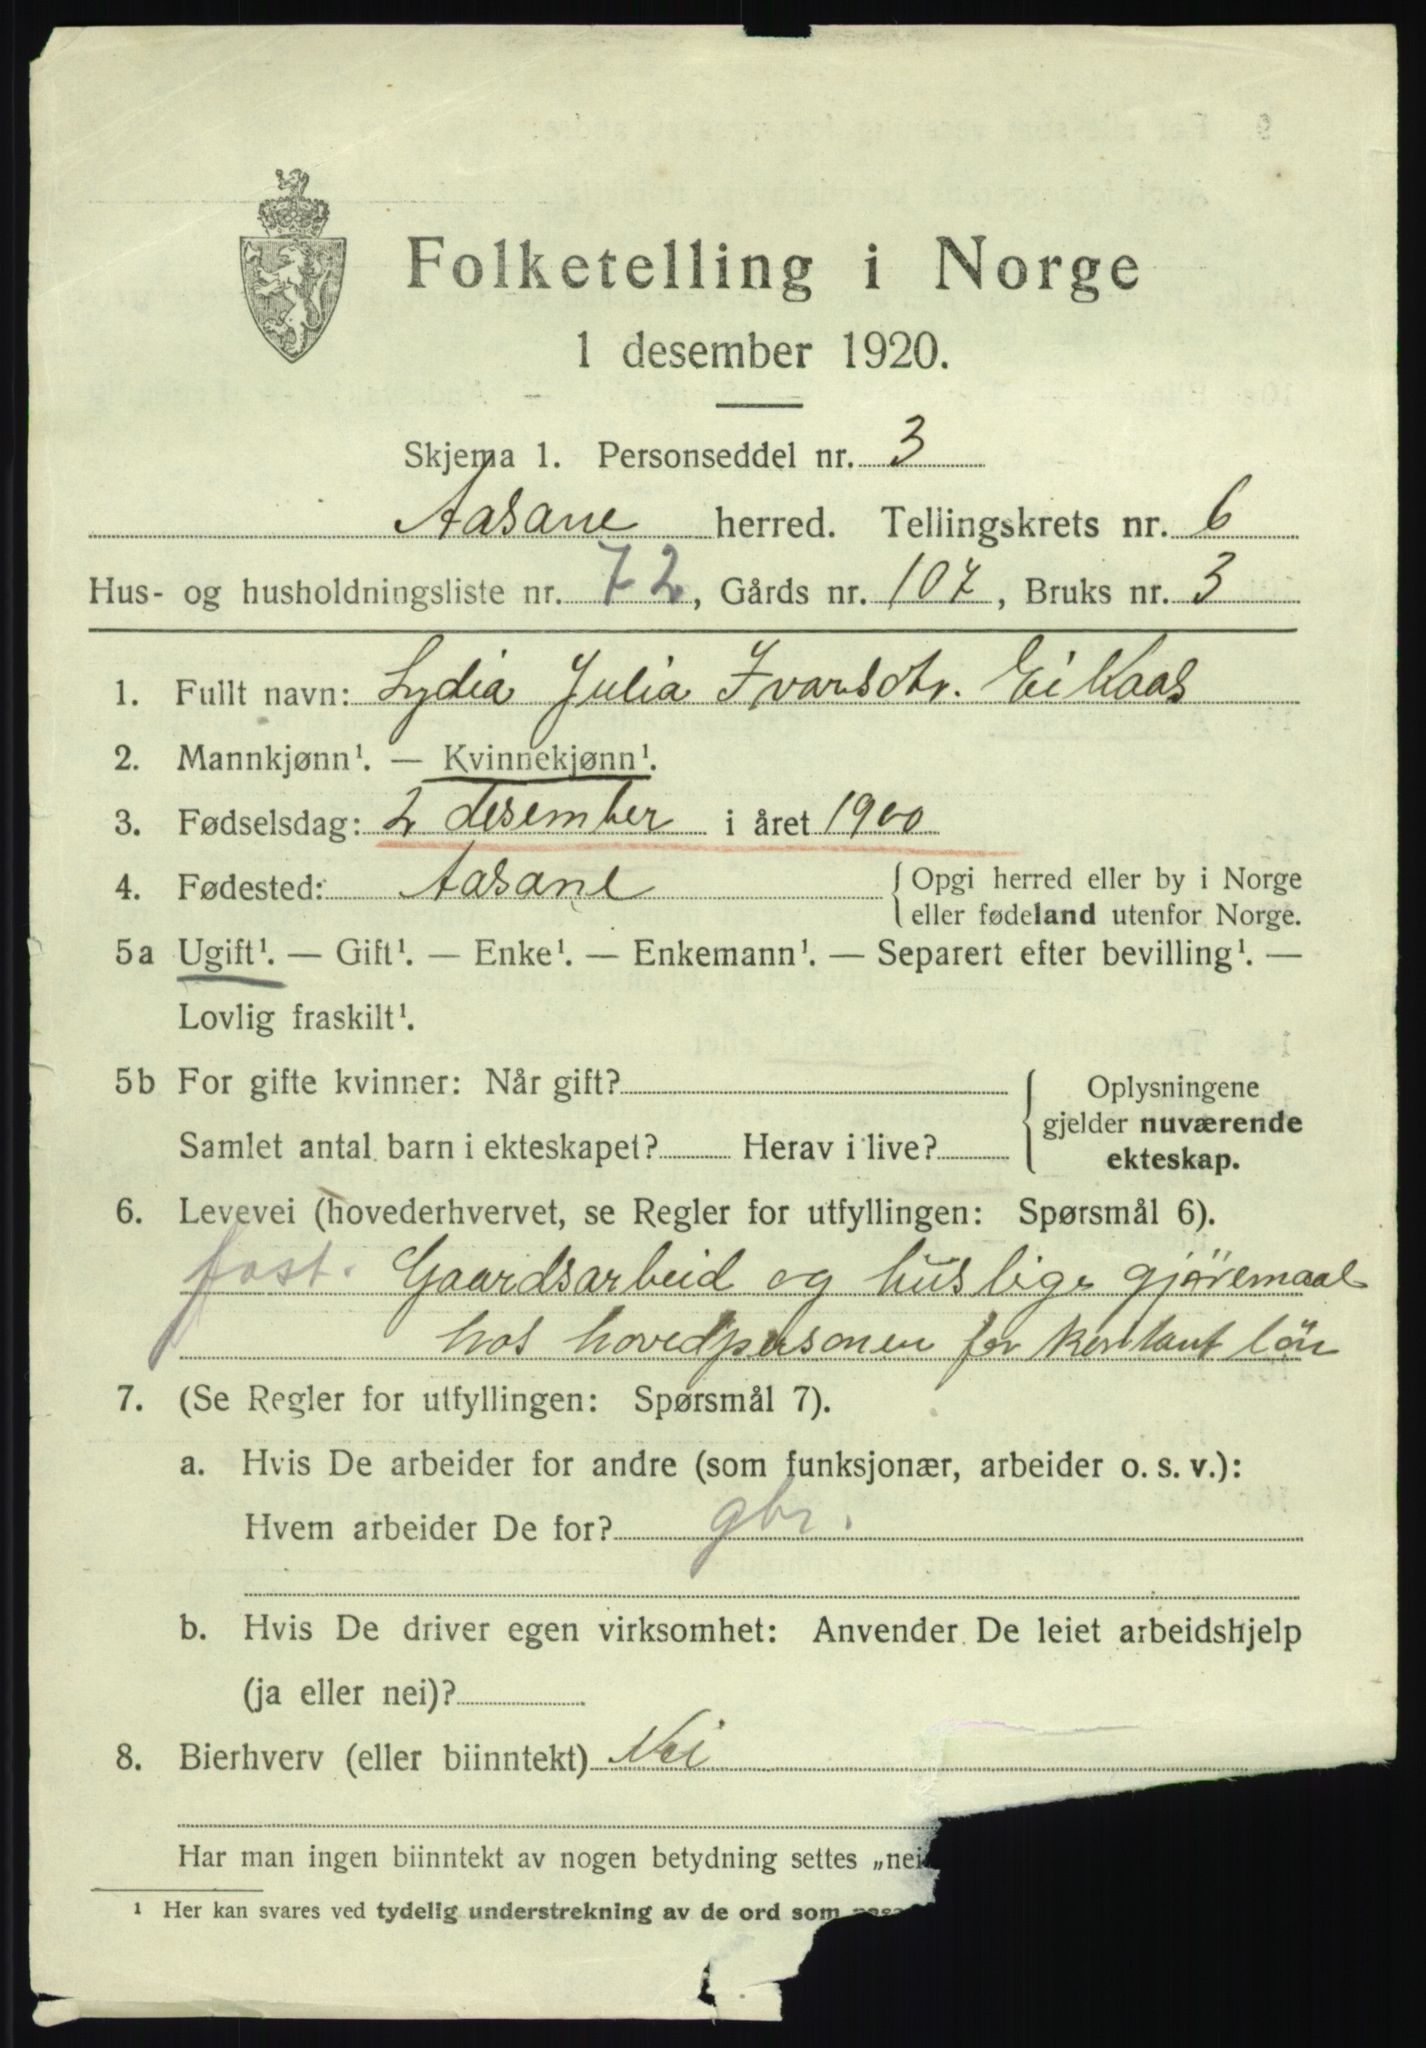 Folketelling i Norge
1 desember 1920.
Skjema 1. Personseddel nr. 3
Aasane herred. Tellingskrets nr. 6
Hus- og husholdningsliste nr. 72, Gårds nr. 107, Bruks nr. 3
1. Fullt navn: Lydia Julia Ivarsdtr. Eikaas
2. Mannkjønn¹. — Kvinnekjønn¹.
3. Fødselsdag: 2 desember i året 1900
4. Fødested: Aasane { Opgi herred eller by i Norge
eller fødeland utenfor Norge.
5a Ugift¹. — Gift¹. — Enke¹. — Enkemann¹. — Separert efter bevilling¹. —
Lovlig fraskilt¹.
5b For gifte kvinner: Når gift? { Oplysningene
gjelder nuværende
Samlet antal barn i ekteskapet? Herav i live?
ekteskap.
6. Levevei (hovederhvervet, se Regler for utfyllingen: Spørsmål 6).
fast. Gaardsarbeid og huslige gjøremaal
hos hovedpersonen for kontant løn
7. (Se Regler for utfyllingen: Spørsmål 7).
a. Hvis De arbeider for andre (som funksjonær, arbeider o. s. v.):
Hvem arbeider De for? gbr.
b. Hvis De driver egen virksomhet: Anvender De leiet arbeidshjelp
(ja eller nei)?
8. Bierhverv (eller biinntekt) Nei
Har man ingen biinntekt av nogen betydning settes „nei
¹ Her kan svares ved tydelig understrekning av de ord som